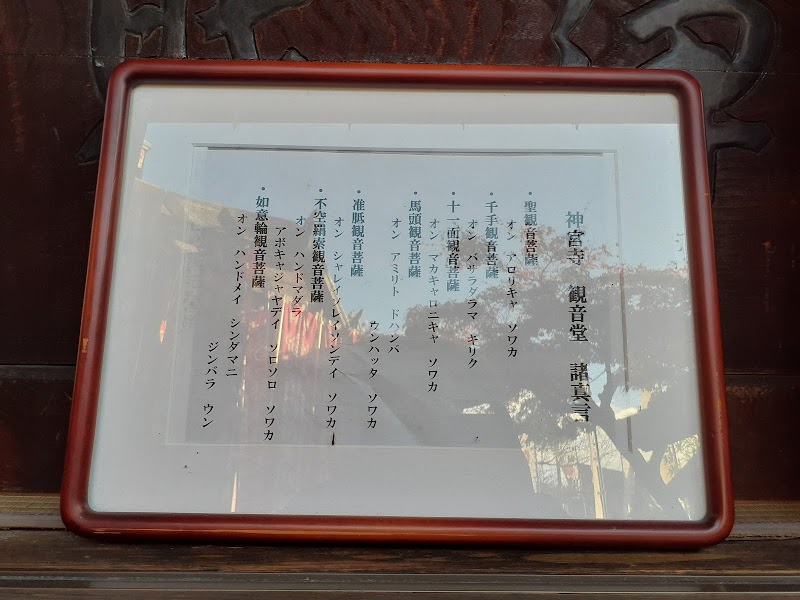 神宮寺 観音堂 諸真言
・聖観音菩薩
オン アロリキャ ソワカ
・千手観音菩薩
オン バサラダラマ キリク
・十一面観音菩薩
オン マカキャロニキャ ソワカ
・馬頭観音菩薩
オン アミリト ドハンバ
ウンハッタ ソワカ
・准胝観音菩薩
オン シャレイソレイソンデイ ソワカ
・不空羂索観音菩薩
オン ハンドマダラ
アボキャジャヤデイ ソロソロ ソワカ
・如意輪観音菩薩
オン ハンドメイ シンダマニ
ジンバラ ウン